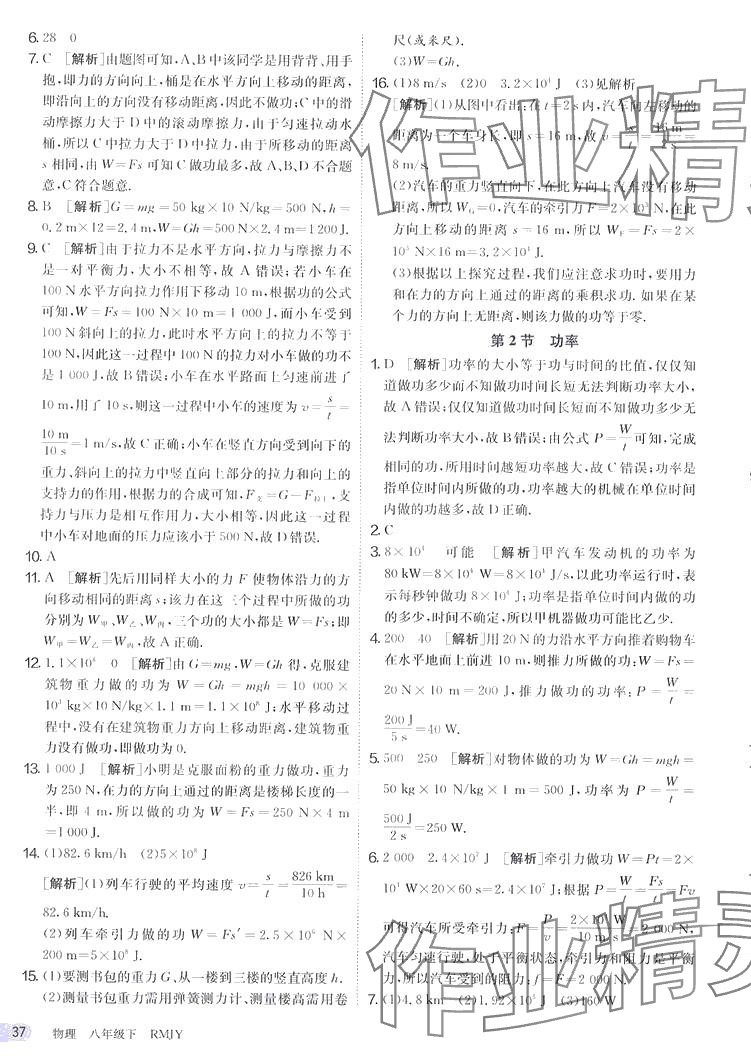 6. 28 0
7. C [解析]由题图可知，A、B中该同学是用背背、用手
抱，即力的方向向上，桶是在水平方向上移动的距离，
即沿向上的方向没有移动距离，因此不做功；C中的滑
动摩擦力大于D中的滚动摩擦力，由于匀速拉动水
桶，所以C中拉力大于D中拉力，由于移动的距离
s相同，由W=Fs可知C做功最多，故A、B、D不合题
意，C符合题意.
8. B [解析]G=mg=50 kg×10 N/kg=500 N，h=
0.2 m×12=2.4 m，W=Gh=500 N×2.4 m=1 200 J.
9. C [解析]由于拉力不是水平方向，拉力与摩擦力不
是一对平衡力，大小不相等，故A错误；若小车在
100 N水平方向拉力作用下移动10 m，根据功的公式
可知，W=Fs=100 N×10 m=1 000 J，而小车受到
100 N斜向上的拉力，此时水平方向上的拉力不等于
100 N，因此在这一过程中，拉力对小车做的功不
是1 000 J，故B错误；小车在水平路面上匀速前行了
10 m，用了10 s，则这一过程中小车的速度为v=s/t=
10 m/10 s=1 m/s，故C正确；小车在竖直方向受到向下的
重力、斜向上的拉力中竖直向上部分的拉力和向上的
支持力的作用，根据力的合成可知，F支=G-F拉上，支
持力与压力是相互作用力，大小相等，因此这一过程
中小车对地面的压力应该小于500 N，故D错误.
10. A
11. A [解析]先后用同样大小的力F使物体沿力的方
向移动相同的距离s；该力在这三个过程中所做的功
分别为W甲、W乙、W丙，三个功的大小都是W=Fs，即
W甲=W乙=W丙，故A正确.
12. 1.1×10⁸ 0 [解析]由G=mg、W=Gh得，克服建
筑物重力做的功为W=Gh=mgh=10 000×
10³ kg×10 N/kg×1.1 m=1.1×10⁸ J；水平移动过
程中，没有在建筑物重力方向上移动距离，建筑物重
力没有做功，即做功为0.
13. 1 000 J [解析]小明是克服面粉的重力做功，重力
为250 N，在力的方向上通过的距离是楼梯长度的一
半，即4 m，所以做的功为W=Fs=250 N×4 m
=1 000 J.
14. (1)82.6 km/h (2)5×10⁸ J
[解析](1)列车行驶的平均速度v=s/t=826 km/10 h=
82.6 km/h.
(2)列车牵引力做的功W=Fs′=2.5×10⁶ N×
200 m=5×10⁸ J.
15. (1)要测量书包的重力G、从一楼到三楼的竖直高度h.
(2)测量书包重力需用弹簧测力计、测量楼高需用卷
尺(或米尺).
(3)W=Gh.
16. (1)8 m/s (2)0 3.2×10⁴ J (3)见解析
[解析](1)从图中看出：在t=2 s内，汽车向左移动的
距离为一个车身长，即s=16 m，v=s/t=16 m/2 s=
8 m/s.
(2)汽车的重力竖直向下，在此方向上汽车没有移动
距离，所以WG=0，汽车的牵引力F=2×10³ N，在此
方向上移动的距离s=16 m，所以WF=Fs=2×
10³ N×16 m=3.2×10⁴ J.
(3)根据以上探究过程，我们应注意求功时，要用力
和在力的方向上通过的距离的乘积求功. 如果在某
个力的方向上无距离，则该力做的功等于零.
第2节 功率
1. D [解析]功率的大小等于功与时间的比值，仅仅知
道做功多少而不知做功时间长短无法判断功率大小，
故A错误；仅仅知道做功时间长短而不知做功多少无
法判断功率大小，故B错误；由公式P=W/t可知，完成
相同的功，所用时间越短功率越大，故C错误；功率是
指单位时间内所做的功，功率越大的机械在单位时间
内做的功越多，故D正确.
2. C
3. 8×10⁴ 可能 [解析]甲汽车发动机的功率为
80 kW=8×10⁴ W=8×10⁴ J/s，以此功率运行时，表
示每秒钟做功8×10⁴ J；功率是指单位时间内做的功
的多少，时间不确定，所以甲机器做功可能比乙少.
4. 200 40 [解析]用20 N的力沿水平方向推着购物车
在水平地面上前进10 m，则推力所做的功：W=Fs=
20 N×10 m=200 J，推力做功的功率：P=W/t=
200 J/5 s=40 W.
5. 500 250 [解析]对物体做的功为W=Gh=mgh=
50 kg×10 N/kg×1 m=500 J，功率为P=W/t=
500 J/2 s=250 W.
6. 2 000 2.4×10⁷ [解析]牵引力做功W=Pt=2×
10⁴ W×20×60 s=2.4×10⁷ J；根据P=W/t=Fs/t=Fv
可得汽车所受牵引力：F=P/v=2×10⁴ W/10 m/s=2 000 N，
汽车匀速行驶，处于平衡状态，牵引力和阻力是平衡
力，所以汽车受到的阻力：f=F=2 000 N.
7. (1)2.4 m/s (2)1.92×10⁵ J (3)160 W
37 物理 八年级下 RMJY
作业精灵
作业精灵